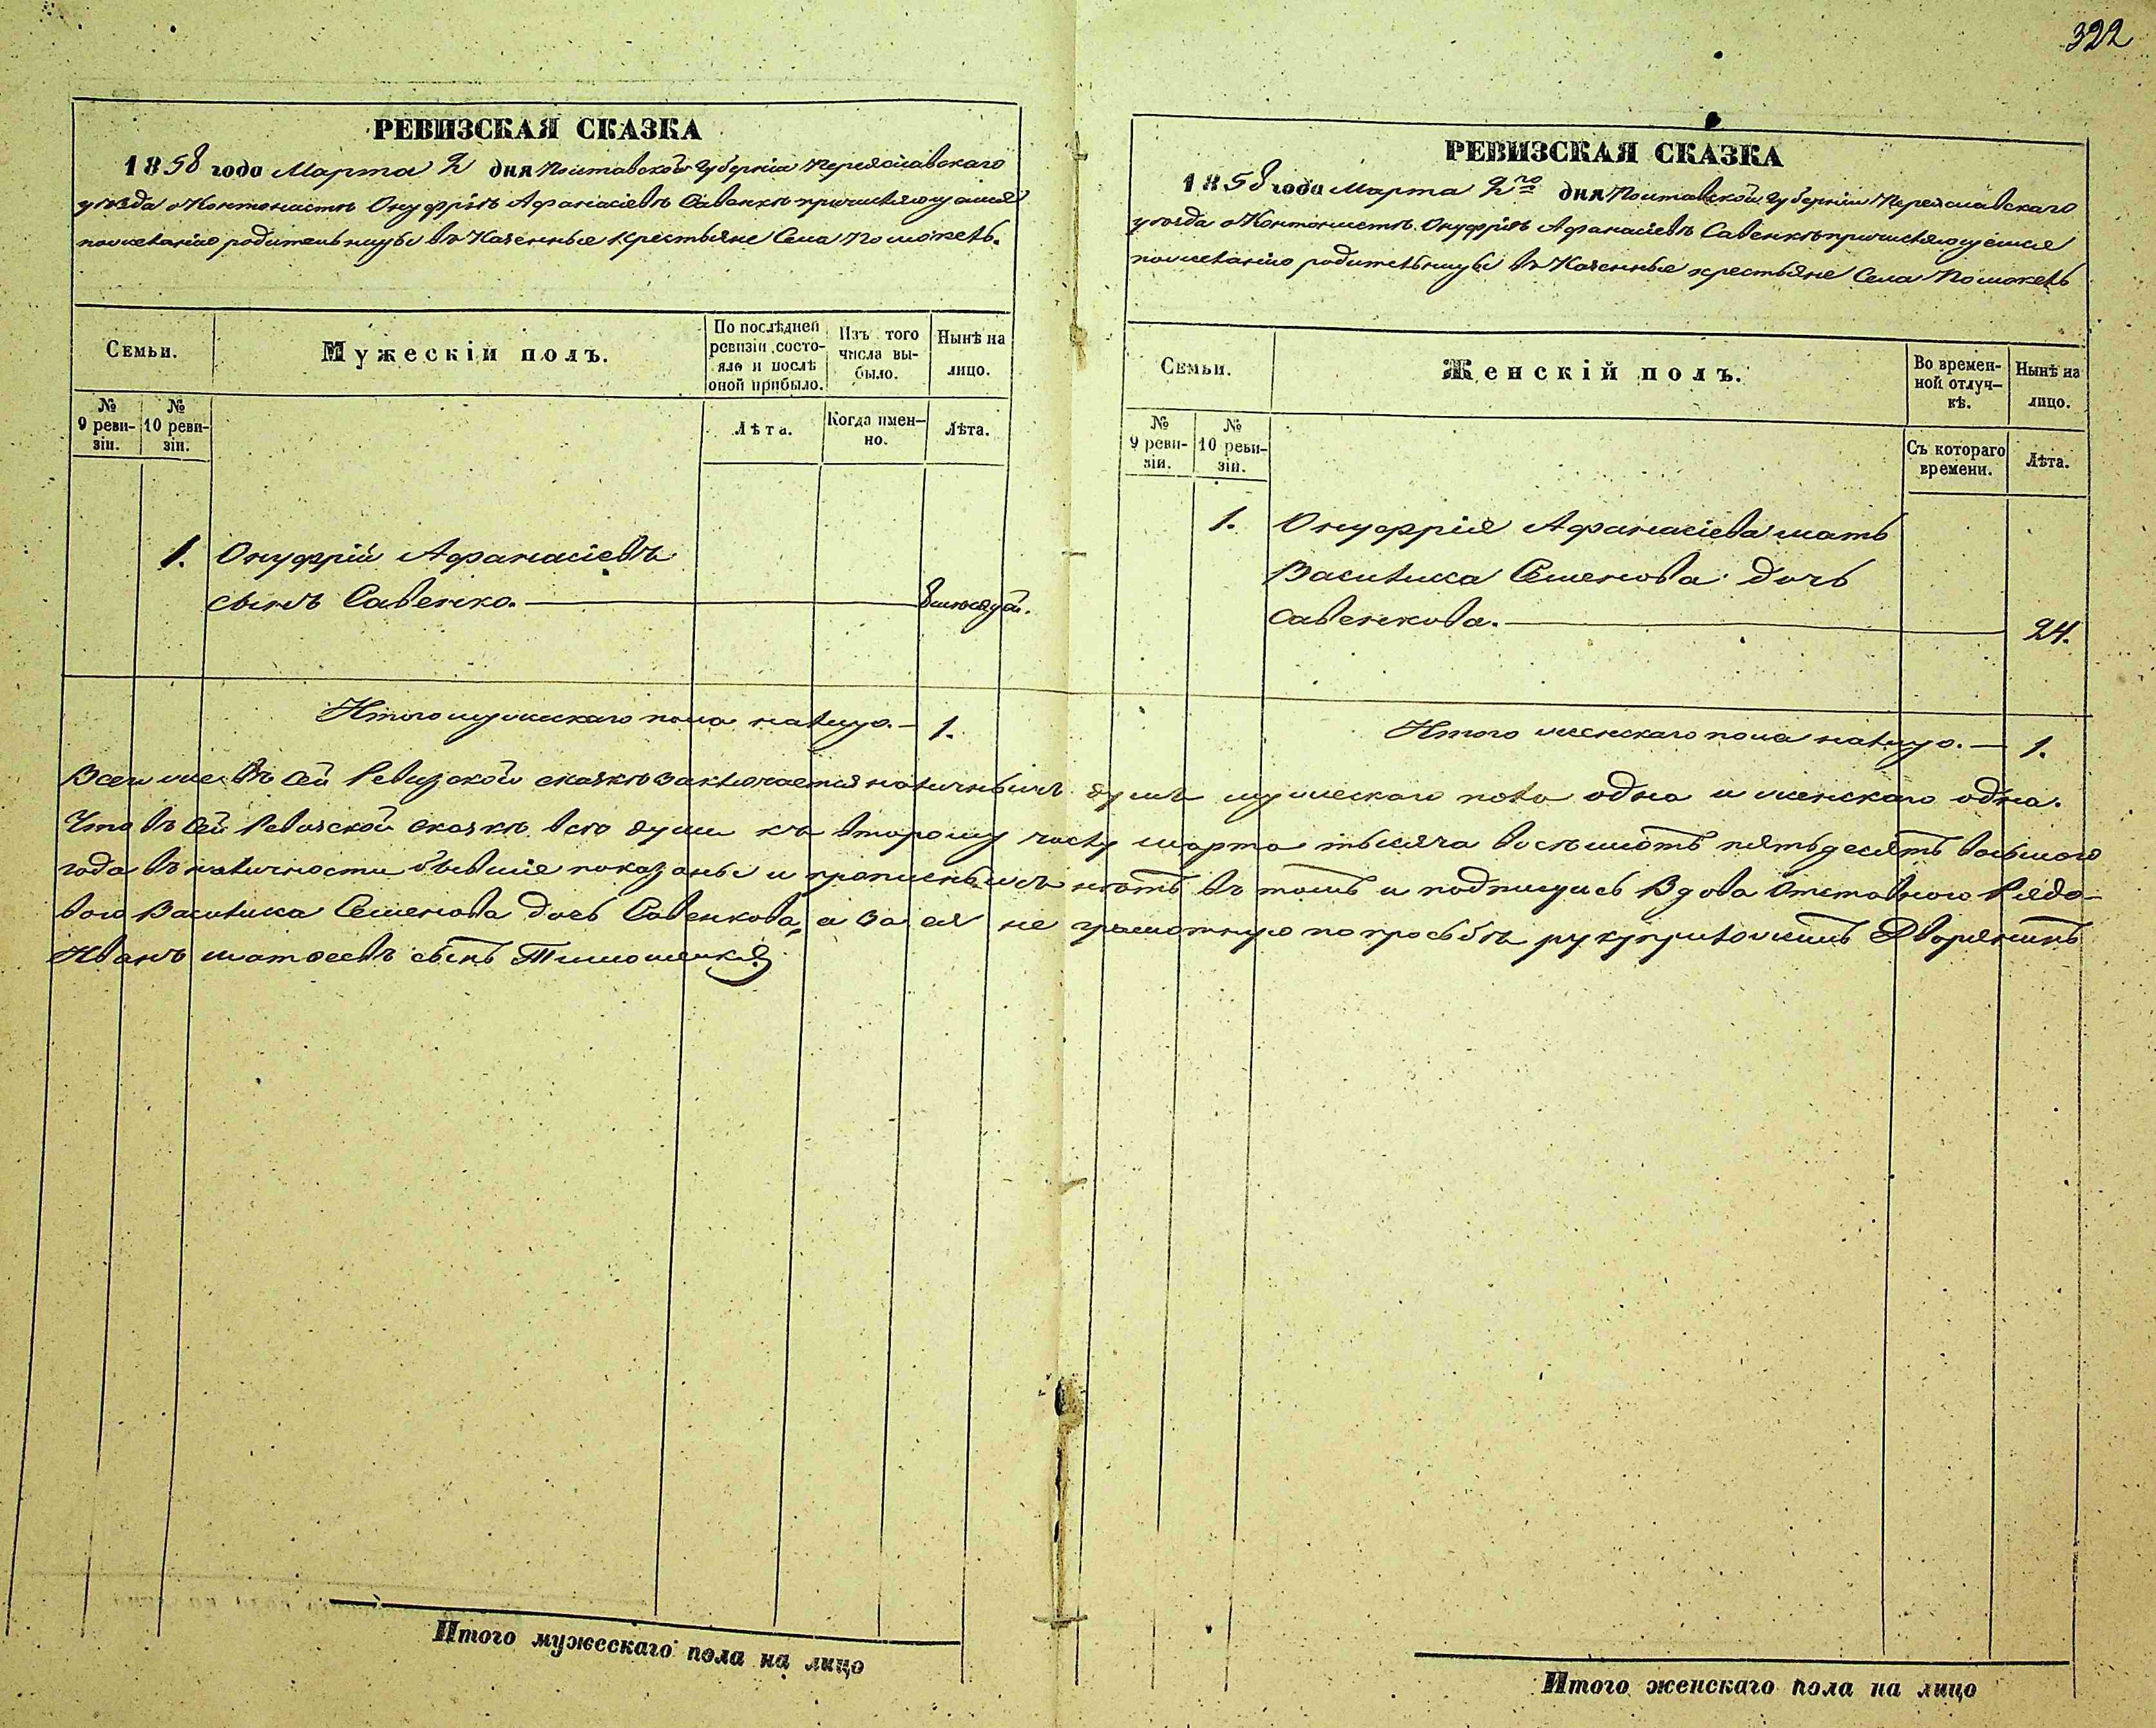 322
РЕВИЗСКАЯ СКАЗКА
1858 года Марта 2 дня Полтавской Губерніи Переяславскаго
уѣзда о Контонистѣ Онуфріѣ Афанасіевѣ Савенкѣ причисляющемся
по желанію родительницы въ Казенные крестьяне Села Помоклъ.
Семьи.
Мужескій полъ.
По послѣдней ревизіи состояло и послѣ оной прибыло.
Изъ того числа выбыло.
Нынѣ на лицо.
№ 9 ревизіи.
№ 10 ревизіи.
Лѣта.
Когда именно.
Лѣта.
1. Онуфрій Афанасіевъ
сынъ Савенко. —
Итого мужескаго пола налицо. — 1.
РЕВИЗСКАЯ СКАЗКА
1858 года Марта 2го дня Полтавской Губерніи Переяславскаго
уѣзда о Контонистѣ Онуфріѣ Афанасіевѣ Савенкѣ причисляющемся
по желанію родительницы въ Казенные крестьяне Села Помоклъ
Семьи.
Женскій полъ.
Во временной отлучкѣ.
Нынѣ на лицо.
№ 9 ревизіи.
№ 10 ревизіи.
Съ котораго времени.
Лѣта.
1. Онуфрія Афанасіева мать
Василиса Семенова дочь
Савенкова. — 24.
Итого женскаго пола налицо. — 1.
Всего же въ сей Ревизской сказкѣ заключается наличныхъ душъ мужескаго пола одна и женскаго одна.
Что въ сей Ревизской сказкѣ всѣ души къ второму числу марта тысяча восѣмьсотъ пятьдесятъ восьмого
года въ наличности бывшіе показаны и прописныхъ нѣтъ въ томъ и подпишусь Вдова Отставного Рядо-
вого Василиса Семенова дочь Савенкова, а за ея не грамотную по просьбѣ руку приложилъ Дворянинъ
Иванъ матвеевъ сынъ Тимошенко
Итого мужескаго пола на лицо
Итого женскаго пола на лицо